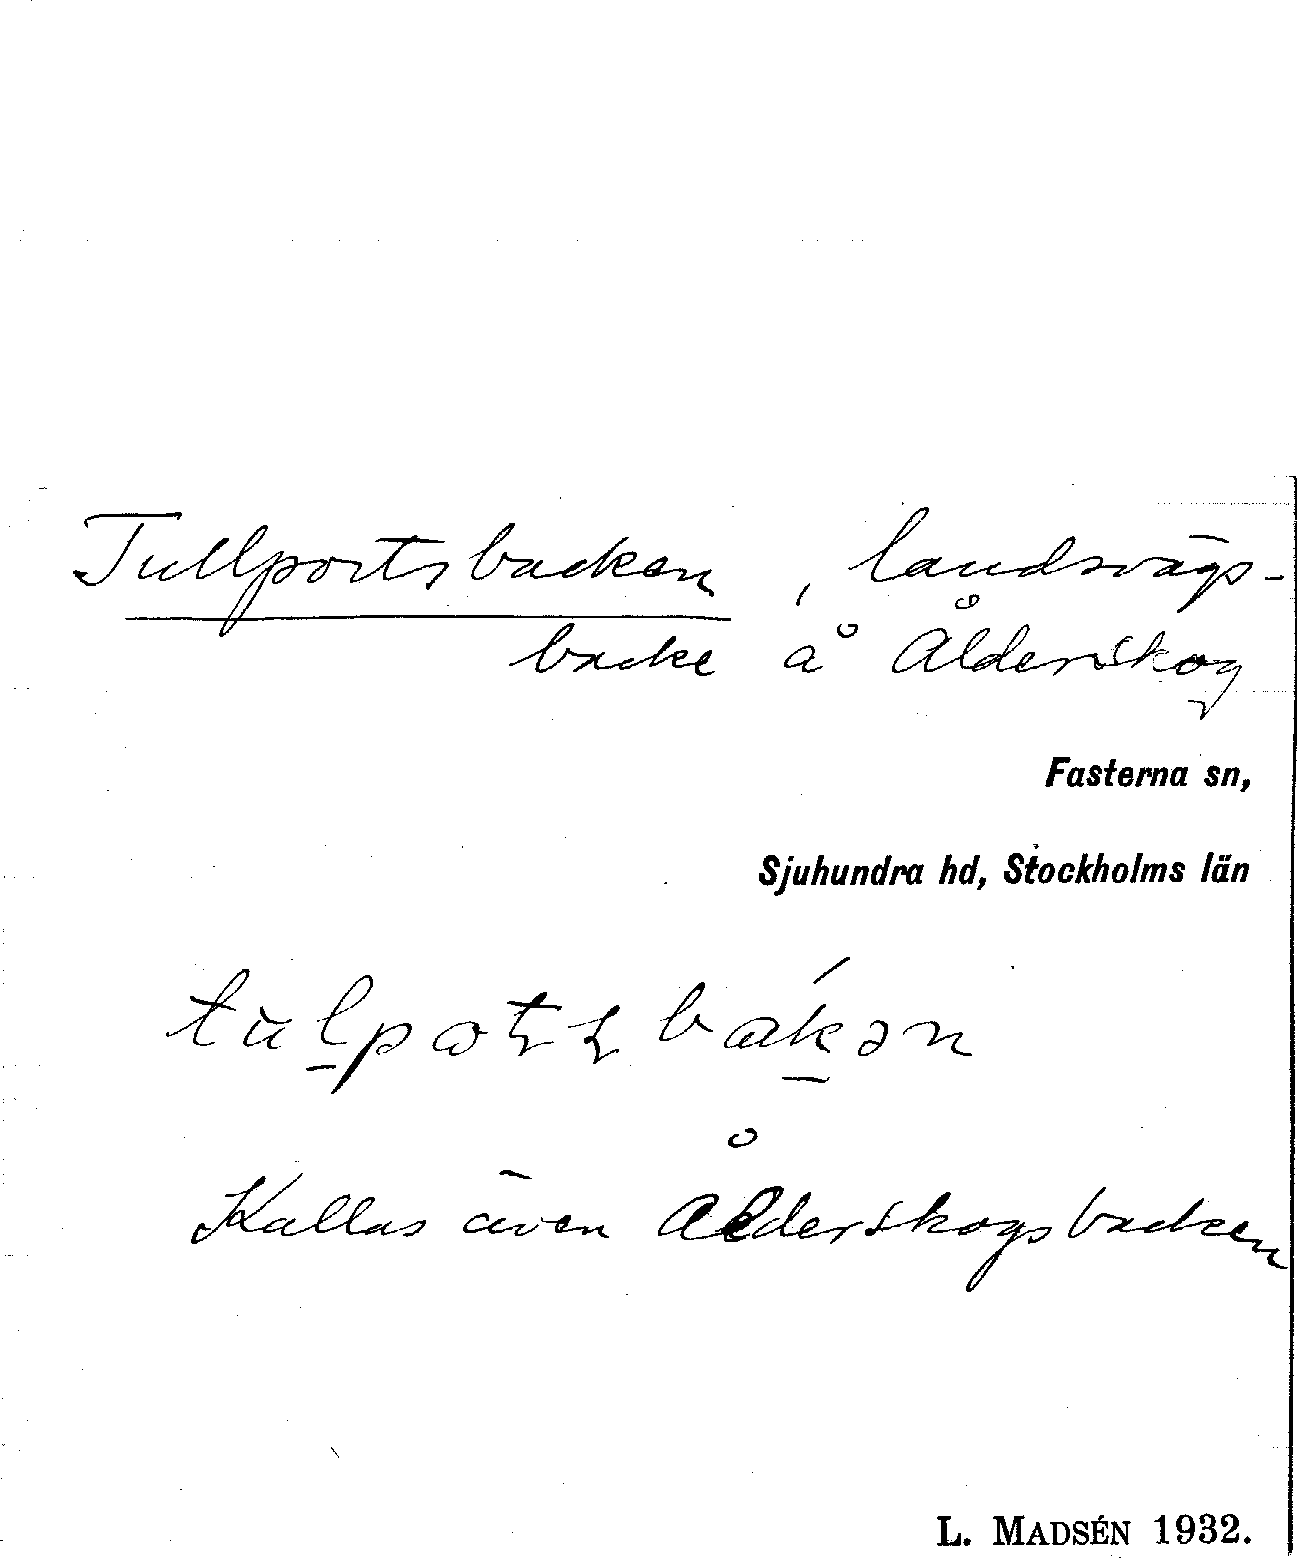 Tullportsbacken, landsvägs-
backe å Ålderskog
Fasterna sn,
Sjuhundra hd, Stockholms län
Kallas även Ålderskogsbacken
L. MADSÉN 1932.